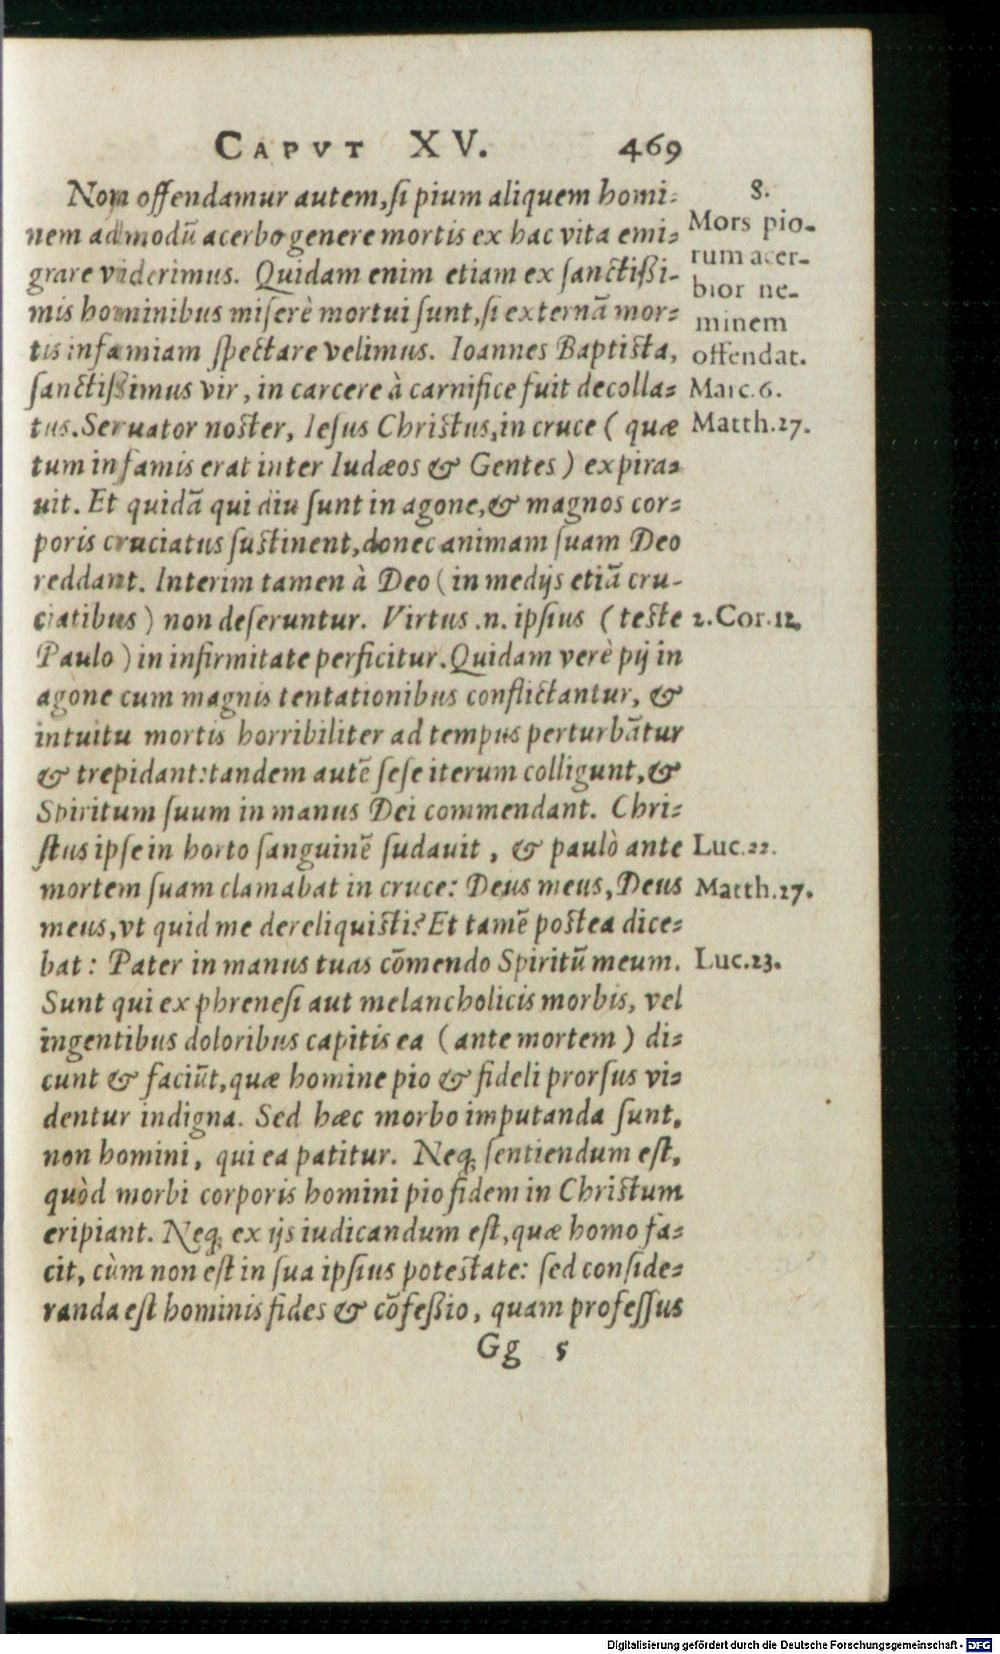 CAPVT XV. 469
Non offendamur autem, si pium aliquem homi-
nem admodũ acerbo genere mortis ex hac vita emi-
grare viderimus. Quidam enim etiam ex sanctißi-
mis hominibus miserè mortui sunt, si externã mor-
tis infamiam spectare velimus. Ioannes Baptista,
sanctißimus vir, in carcere à carnifice fuit decolla-
tus. Seruator noster, Iesus Christus, in cruce ( quæ
tum infamis erat inter Iudæos & Gentes ) expira-
uit. Et quidã qui diu sunt in agone, & magnos cor-
poris cruciatus sustinent, donec animam suam Deo
reddant. Interim tamen à Deo ( in medijs etiã cru-
ciatibus ) non deseruntur. Virtus .n. ipsius ( teste
Paulo ) in infirmitate perficitur. Quidam verè pij in
agone cum magnis tentationibus conflictantur, &
intuitu mortis horribiliter ad tempus perturbãtur
& trepidant: tandem autẽ sese iterum colligunt, &
Spiritum suum in manus Dei commendant. Chri-
stus ipse in horto sanguinẽ sudauit, & paulò ante
mortem suam clamabat in cruce: Deus meus, Deus
meus, vt quid me dereliquisti? Et tamẽ postea dice-
bat: Pater in manus tuas cõmendo Spiritũ meum.
Sunt qui ex phrenesi aut melancholicis morbis, vel
ingentibus doloribus capitis ea ( ante mortem ) di-
cunt & faciũt, quæ homine pio & fideli prorsus vi-
dentur indigna. Sed hæc morbo imputanda sunt,
non homini, qui ea patitur. Neq; sentiendum est,
quòd morbi corporis homini pio fidem in Christum
eripiant. Neq; ex ijs iudicandum est, quæ homo fa-
cit, cùm non est in sua ipsius potestate: sed conside-
randa est hominis fides & cõfeßio, quam professus
Gg 5
8.
Mors pio-
rum acer-
bior ne-
minem
offendat.
Marc. 6.
Matth. 27.
2. Cor. 12.
Luc. 22.
Matth. 27.
Luc. 23.
Digitalisierung gefördert durch die Deutsche Forschungsgemeinschaft - DFG